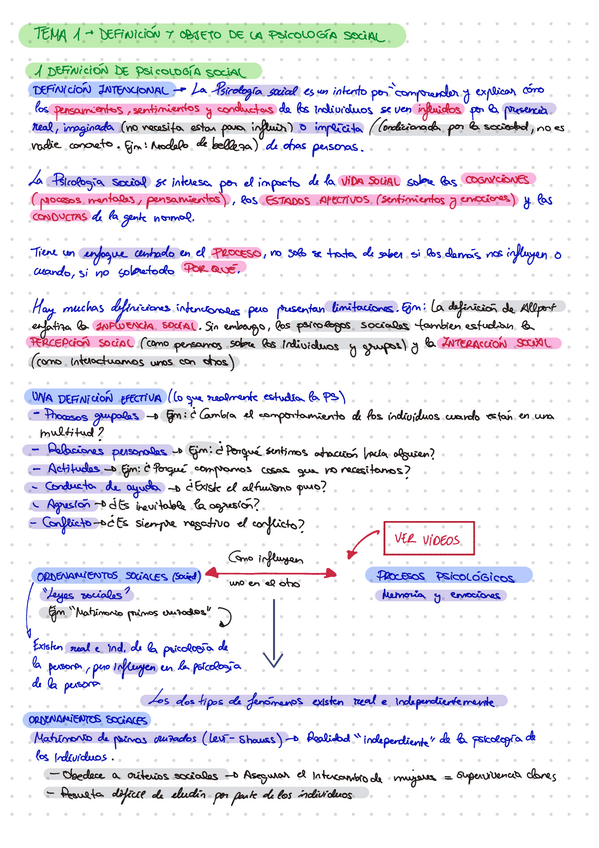 TEMA 1 → DEFINICIÓN Y OBJETO DE LA PSICOLOGÍA SOCIAL
1 DEFINICIÓN DE PSICOLOGÍA SOCIAL
DEFINICIÓN INTENCIONAL → La Psicología social es un intento por "comprender y explicar cómo
los pensamientos, sentimientos y conductas de los individuos se ven influidos por la presencia
real, imaginada (no necesita estar para influir) o implícita ((condicionada por la sociedad, no es
nadie concreto. Ejm: Modelo de belleza) de otras personas.
La Psicología Social se interesa por el impacto de la VIDA SOCIAL sobre las COGNICIONES
(procesos mentales, pensamientos), los ESTADOS AFECTIVOS (sentimientos y emociones) y las
CONDUCTAS de la gente normal.
Tiene un enfoque centrado en el PROCESO, no solo se trata de saber si los demás nos influyen o
cuando, si no sobretodo POR QUÉ.
Hay muchas definiciones intencionales pero presentan limitaciones. Ejm: La definición de Allport
enfatiza la INFLUENCIA SOCIAL. Sin embargo, los psicologos sociales tambien estudian la
PERCEPCIÓN SOCIAL (como pensamos sobre los individuos y grupos) y la INTERACCIÓN SOCIAL
(como interactuamos unos con otros)
UNA DEFINICIÓN EFECTIVA (lo que realmente estudia la PS)
- Procesos grupales → Ejm: ¿Cambia el comportamiento de los individuos cuando están en una
multitud?
- Relaciones personales → Ejm: ¿Porqué sentimos atracción hacia alguien?
- Actitudes → Ejm: ¿Porqué compramos cosas que no necesitamos?
- Conducta de ayuda → ¿Existe el altruismo puro?
- Agresión → ¿Es inevitable la agresión?
- Conflicto → ¿Es siempre negativo el conflicto?
VER VIDEOS
Como influyen
ORDENAMIENTOS SOCIALES (Social)
uno en el otro
PROCESOS PSICOLÓGICOS
"Leyes sociales"
Memoria y emociones
Ejm "Matrimonio primos cruzados"
Existen real e ind. de la psicología de
la persona, pero influyen en la psicología
de la persona
Los dos tipos de fenómenos existen real e independientemente
ORDENAMIENTOS SOCIALES
Matrimonio de primos cruzados (Levi-Strauss) → Realidad "independiente" de la psicología de
los individuos.
- Obedece a criterios sociales → Asegurar el intercambio de mujeres = supervivencia clanes
- Resulta difícil de eludir por parte de los individuos